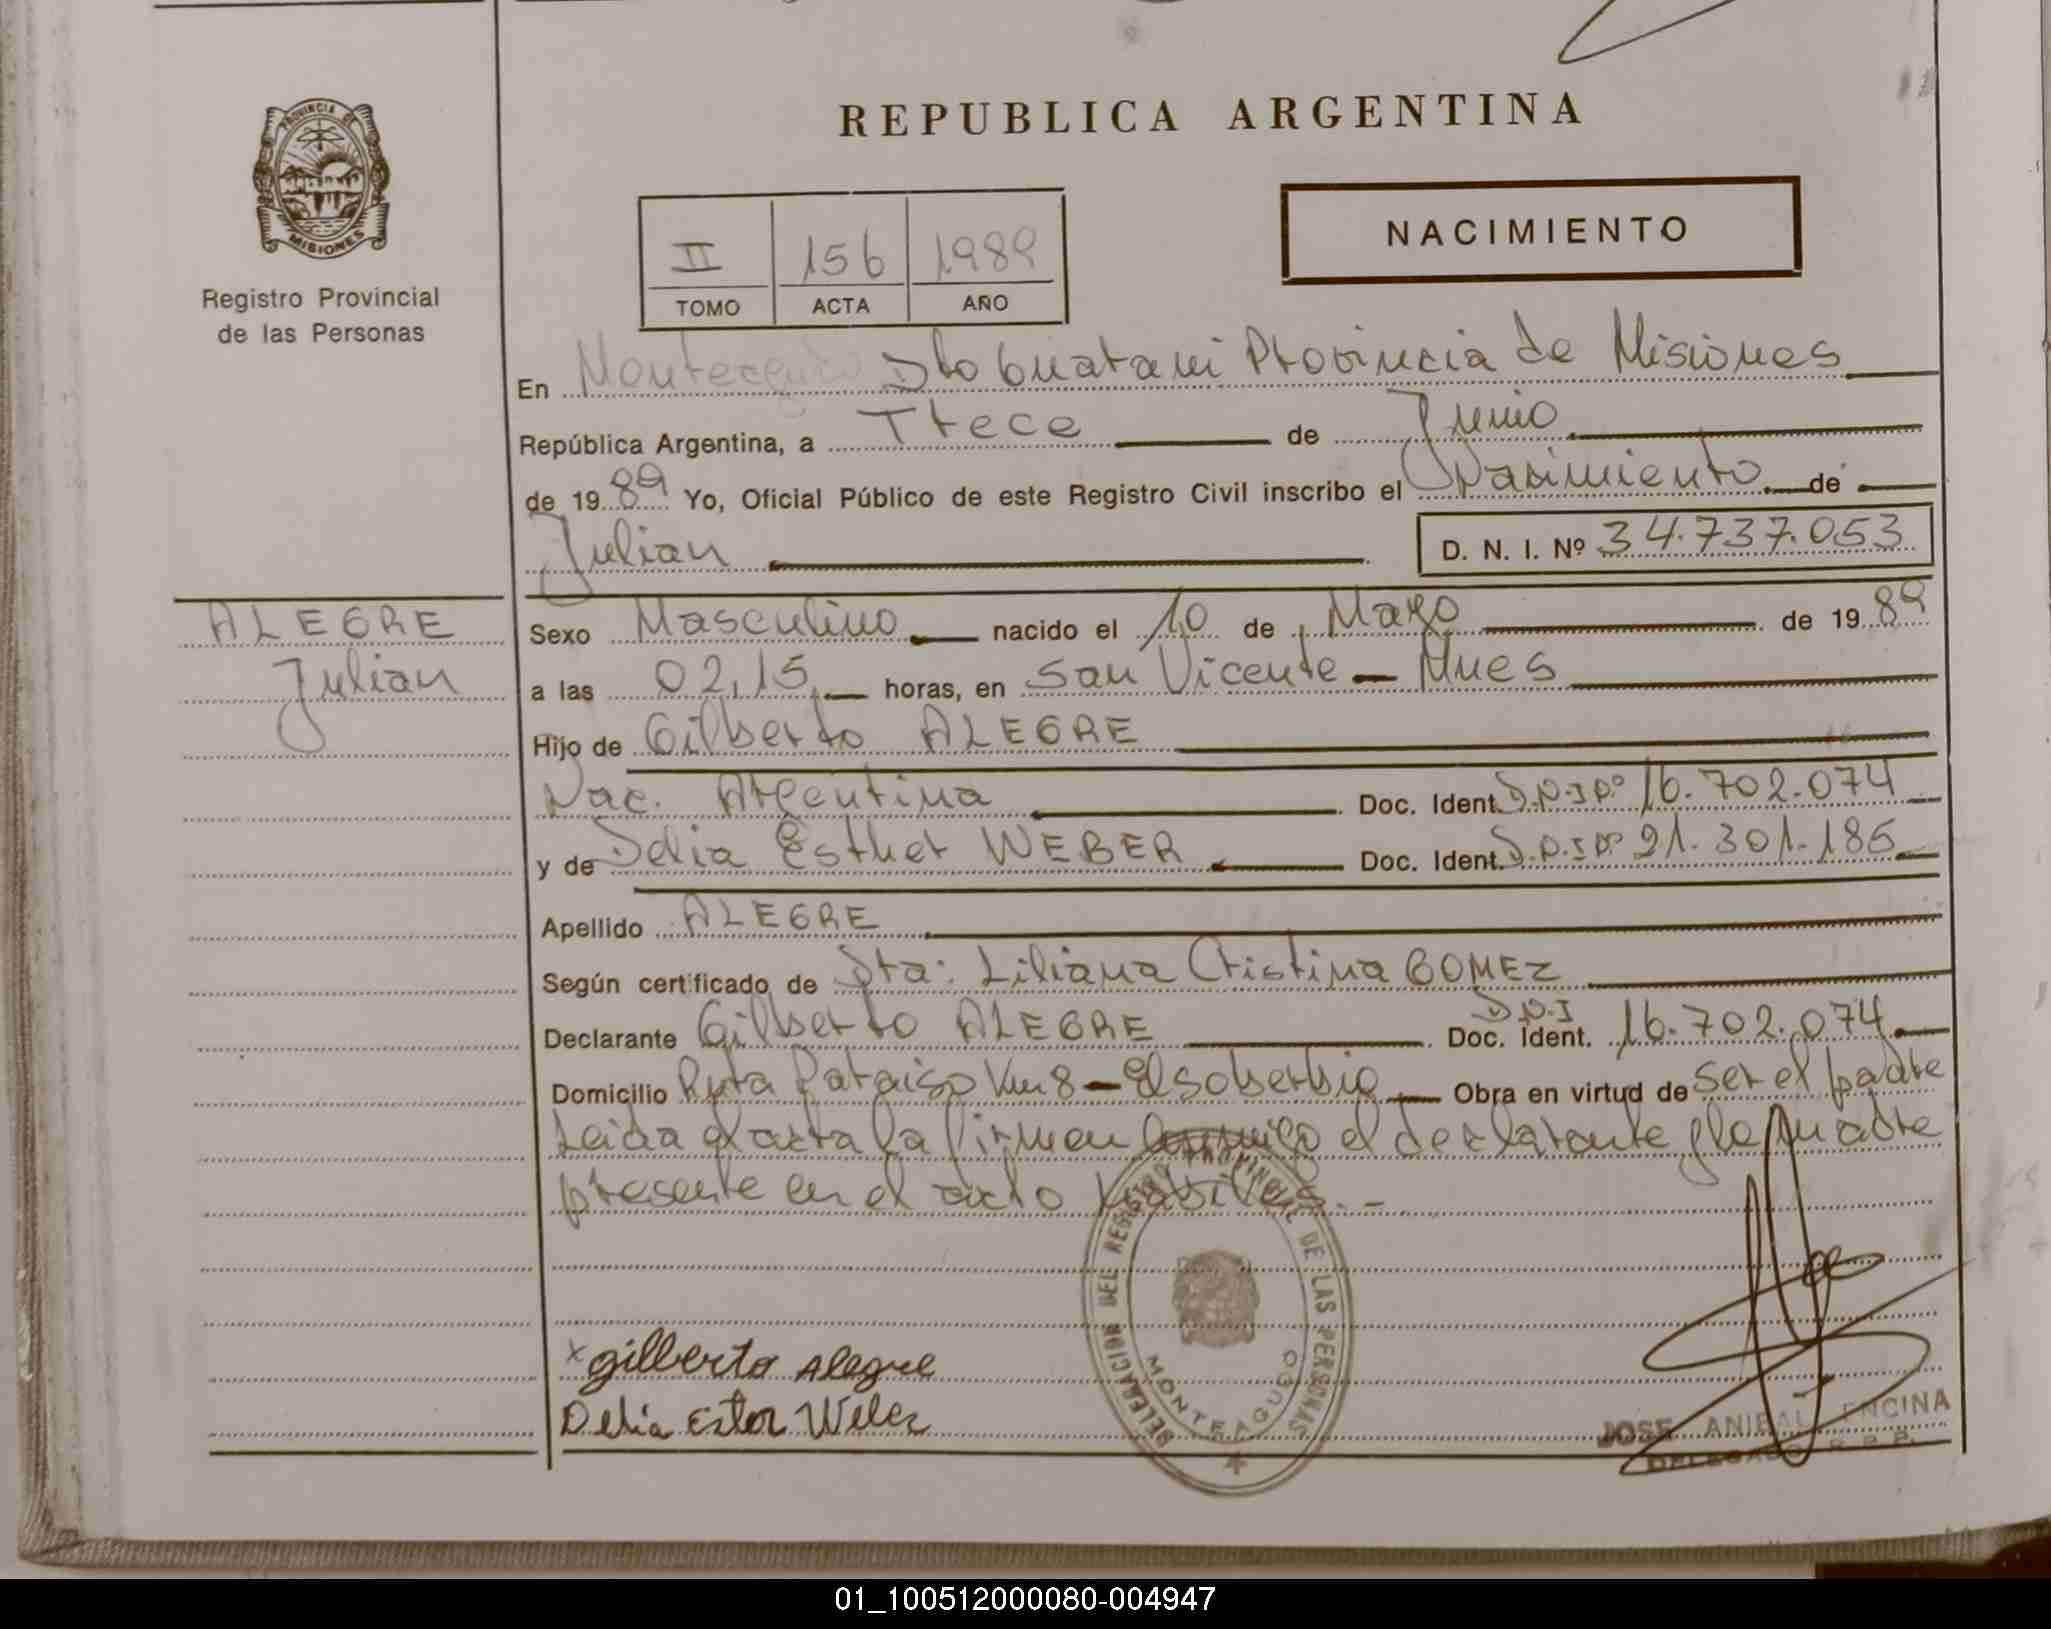 REPUBLICA ARGENTINA
PROVINCIA DE
MISIONES
Registro Provincial
de las Personas
II 156 1989
TOMO ACTA AÑO
NACIMIENTO
En Monteagudo Dto Guarani Provincia de Misiones
República Argentina, a Trece de Junio
de 1989 Yo, Oficial Público de este Registro Civil inscribo el Nacimiento de
Julian D. N. I. Nº 34.737.053
ALEGRE
Julian
Sexo Masculino nacido el 10 de Mayo de 1989
a las 02,15 horas, en San Vicente - Mnes
Hijo de Gilberto ALEGRE
Nac. Argentina Doc. Ident. D.N.I Nº 16.702.074
y de Delia Esther WEBER Doc. Ident. D.N.I Nº 21.301.186
Apellido ALEGRE
Según certificado de Sra: Liliana Cristina GOMEZ
Declarante Gilberto ALEGRE Doc. Ident. D.N.I 16.702.074
Domicilio Ruta Paraiso Km 8 - El soberbio Obra en virtud de ser el padre
Leida el acta la firman conmigo el declarante y la madre
presente en el acto
DELEGACION DEL REGISTRO PROVINCIAL DE LAS PERSONAS
MONTEAGUDO
x gilberto Alegre
Delia Ester Weber
JOSE ANIBAL ENCINA
DELEGADO R.P.P.
01_100512000080-004947